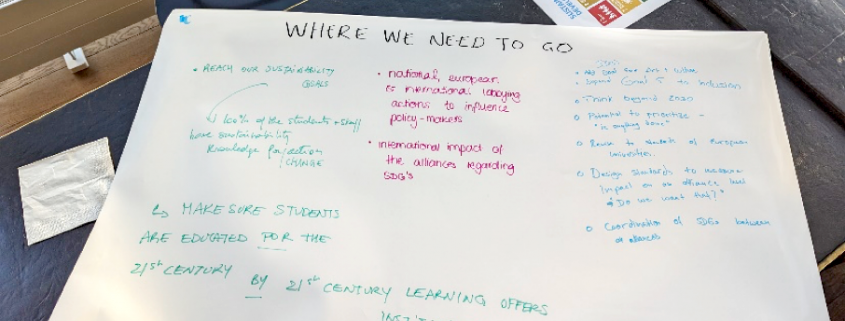 WHERE WE NEED TO GO
• REACH OUR SUSTAINABILITY
GOALS
↳ 100% of the students + staff
have sustainability
knowledge for action
/CHANGE
↳ MAKE SURE STUDENTS
ARE EDUCATED FOR THE
21st CENTURY BY 21st CENTURY LEARNING OFFERS
• national, european
& international lobbying
actions to influence
policy-makers
• international impact of
the alliances regarding
SDG's
Goal 5 to inclusion
• Think beyond 2030
• Potential to prioritise -
of European
Universities
• Design standards to measure
impact on an alliance level
"Do we want that?"
• Coordination of SDGs between
alliances